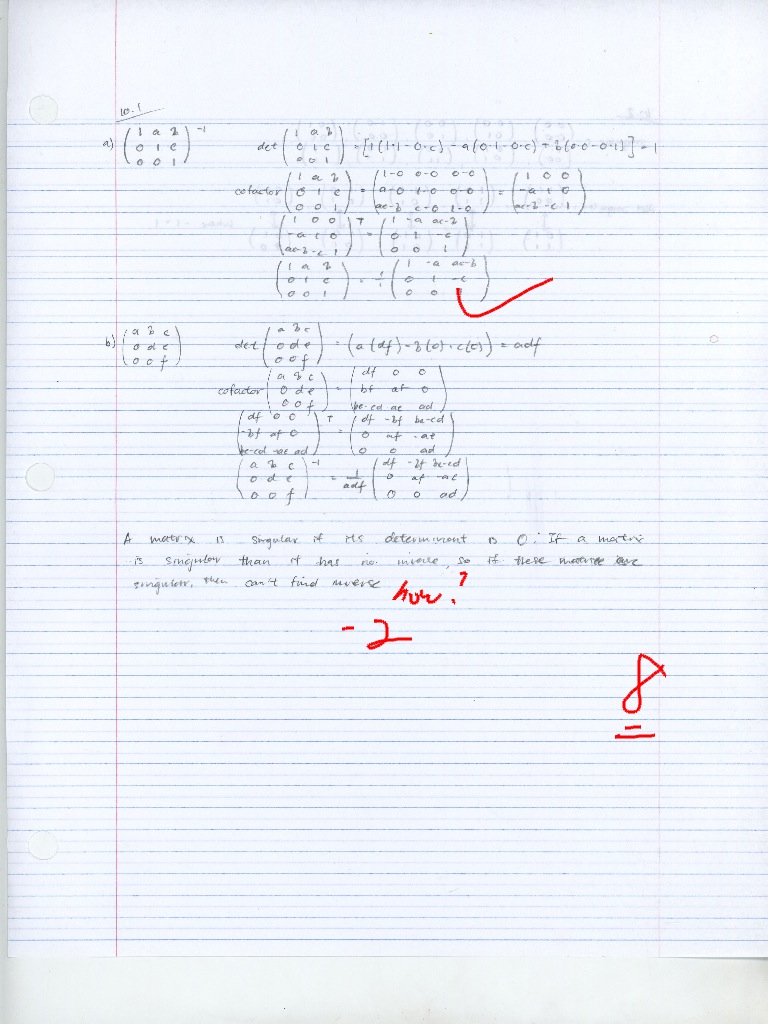 10.1
a) (1 a b; 0 1 c; 0 0 1)^-1 det (1 a b; 0 1 c; 0 0 1) = [1(1·1-0·c) -a(0·1-0·c) + b(0·0-0·1)] = 1
cofactor (1 a b; 0 1 c; 0 0 1) = (1-0 0-0 0-0; a-0 1-0 0-0; ac-b c-0 1-0) = (1 0 0; -a 1 0; ac-b -c 1)
(1 0 0; -a 1 0; ac-b -c 1)^T = (1 -a ac-b; 0 1 -c; 0 0 1)
(1 a b; 0 1 c; 0 0 1) = 1/1 (1 -a ac-b; 0 1 -c; 0 0 1)
b) (a b c; 0 d e; 0 0 f) det (a b c; 0 d e; 0 0 f) = (a(df) - b(0) + c(0)) = adf
cofactor (a b c; 0 d e; 0 0 f) = (df 0 0; bf af 0; be-cd ae ad)
(df 0 0; -bf af 0; be-cd -ae ad)^T = (df -bf be-cd; 0 af -ae; 0 0 ad)
(a b c; 0 d e; 0 0 f)^-1 = 1/adf (df -bf be-cd; 0 af -ae; 0 0 ad)
A matrix is singular if its determinant is 0. If a matrix
is singular than it has no inverse, so if these matrices are
singular, then can't find inverse
how?
-2
8